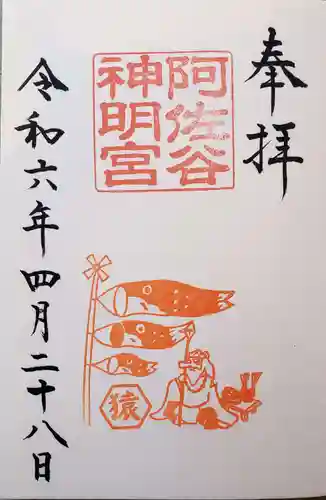 奉拝
阿佐谷
神明宮
猿
令和六年四月二十八日